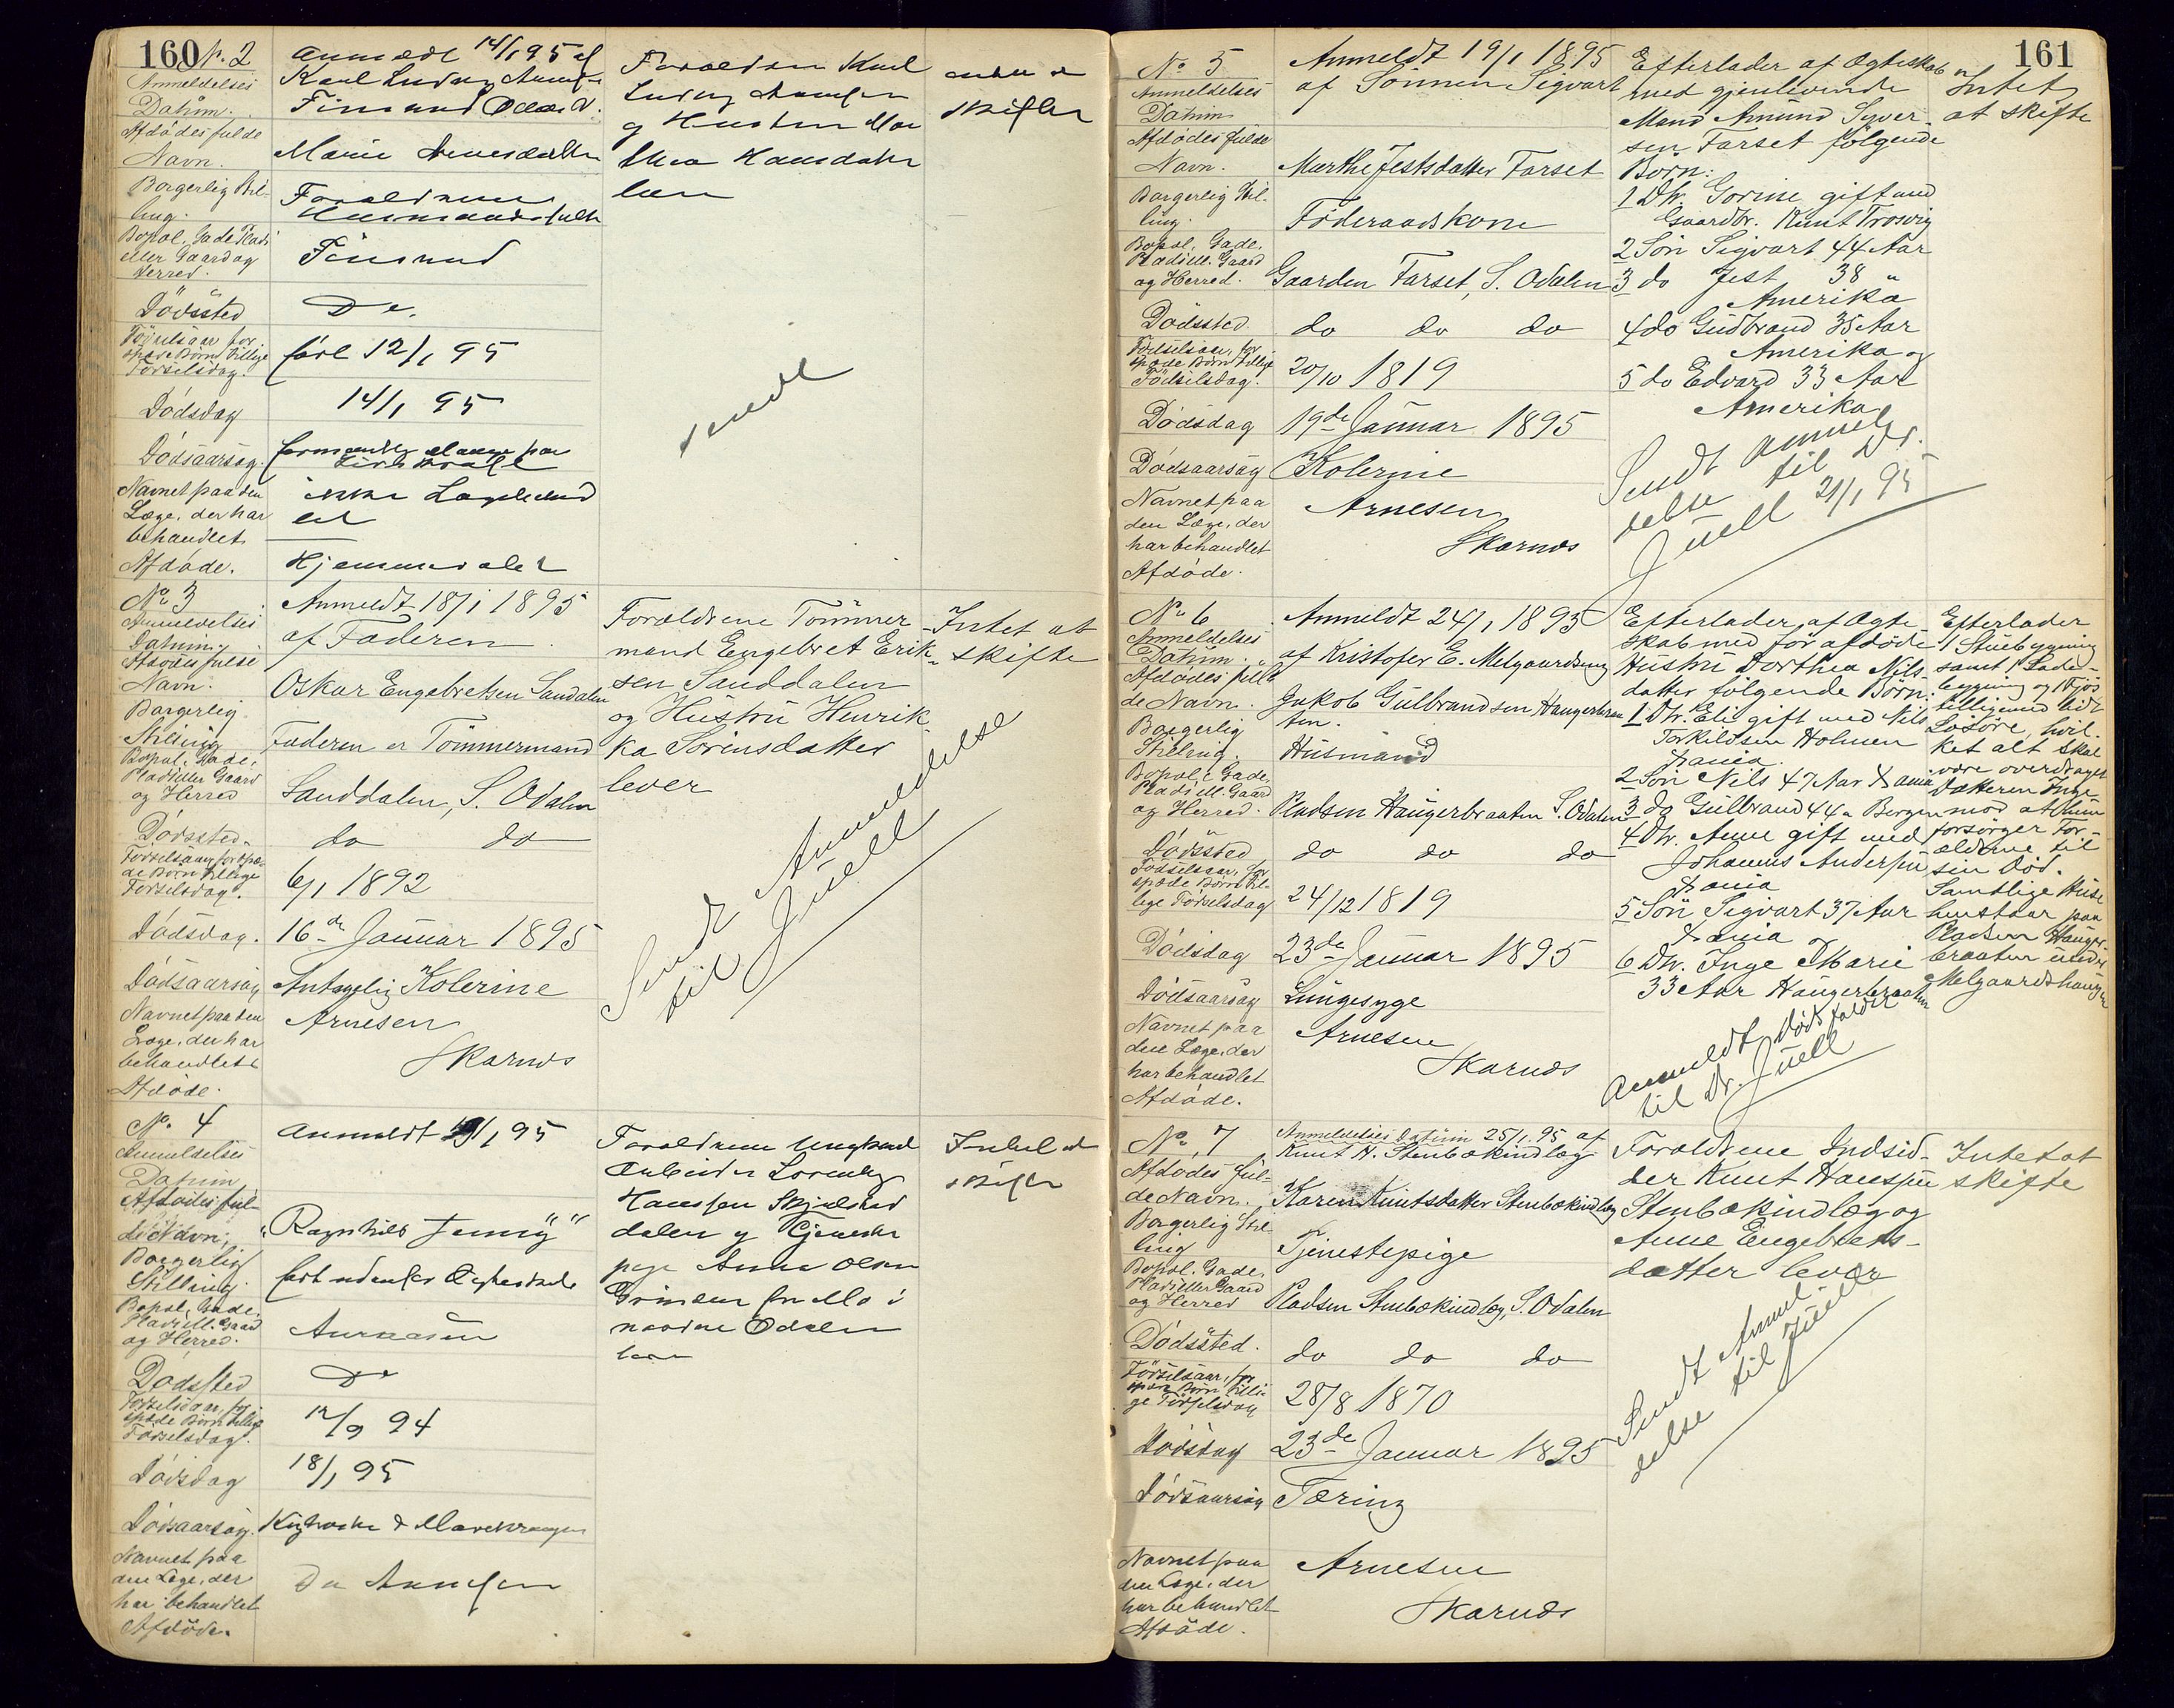 160
No. 2
Anmeldelses
Datum.
Anmeldt 14/1 95 af
Karl Ludvig
Afdødes fulde
Navn.
Marie
Borgerlig Stil-
ling.
Forældrene
Husmandsfolk
Bopæl, Gade Plads
eller Gaard og
Herred.
Finsrud
Dødssted
Do.
Fødselsaar for
spæde Børn tillige
Fødselsdag.
født 12/1 95
Dødsdag
14/1 95
Dødsaarsag.
formentlig Mange paa
Livskraft
Navnet paa den
Læge, der har
behandlet
Afdøde.
ikke Lægebehand
let
Hjemmedøbt
Forældrene Karl
Ludvig
og Hustru
lever
intet at
skifte
sendt
No 3
Anmeldelses
Datum.
Anmeldt 18/1 1895
af Faderen
Afdødes fulde
Navn.
Oskar Engebretsen Sanddalen
Borgerlig
Stilling
Faderen er Tømmermand
Bopæl, Gade,
Plads eller Gaard
og Herred
Sanddalen, S. Odalen
Dødssted.
do do
Fødselsaar, for spæ-
de Børn tillige
Fødselsdag.
6/1 1892
Dødsdag.
16de Januar 1895
Dødsaarsag
Antagelig Kolerine
Navnet paa den
Læge, der har
behandlet
Afdøde.
Arnesen
Skarnæs
Forældrene Tømmer-
mand Engebret Erik-
sen Sanddalen
og Hustru Henrik-
ka Sørensdatter
lever
Intet at
skifte
Sendt Anmeldelse
til Juell
No. 4
Anmeldelses
Datum
Anmeldt 19/1 95
Afdødes ful-
de Navn;
"Ragnhild Jenny"
Borgerlig
Stilling
født udenfor Ægteskab
Bopæl, Gade,
Plads ell. Gaard
og Herred.
Aurnæsen
Dødssted
Do
Fødselsaar, for
spæde Børn tillige
Fødselsdag.
12/9 94
Dødsdag
18/1 95
Dødsaarsag.
Kighoste & Mavekrampe
Navnet paa
den Læge, der
har behandlet
Afdøde.
Dr Arnesen
Forældrene Ungkarl
Arbeider Lorentz
Hanssen Skjelstad
dalen og Tjeneste
pige Anna Olsen
Grinden fra Mo i
nordre Odalen
lever
Intet at
skifte
161
No 5
Anmeldelses
Datum
Anmeldt 19/1 1895
af Sønnen Sigvart
Afdødes fulde
Navn.
Marthe Jestsdatter Farset
Borgerlig Stil-
ling.
Føderaadskone
Bopæl, Gade,
Plads ell. Gaard
og Herred.
Gaarden Farset, S. Odalen
Dødssted.
do do do
Fødselsaar, for
spæde Børn tillige
Fødselsdag.
20/10 1819
Dødsdag
19de Januar 1895
Dødsaarsag
Kolerine
Navnet paa
den Læge, der
har behandlet
Afdøde.
Arnesen
Skarnæs
Efterlader af Ægteskab
med gjenlevende
Mand Amund Syver-
sen Farset følgende
Børn:
1 Dtr. Gorine gift med
Gaardbr. Knut Trosvig
2 Søn Sigvart 44 Aar
3 do Jest 38 "
Amerika
4 do Gudbrand 35 Aar
Amerika og
5 do Edvard 33 Aar
Amerika
Intet
at skifte
Sendt Anmel-
delse til Dr.
Juell 21/1 95
No 6
Anmeldelses
Datum.
Anmeldt 24/1 1895
af Kristofer E. Melgaardseng
Afdødes ful-
de Navn.
Jakob Gulbrandsen Haugerbraa-
ten.
Borgerlig
Stilling.
Husmand
Bopæl, Gade,
Plads ell. Gaard
og Herred.
Pladsen Haugerbraaten S. Odalen
Dødssted
do do do
Fødselsaar, for
spæde Børn til-
lige Fødselsdag
24/12 1819
Dødsdag
23de Januar 1895
Dødsaarsag
Lungesyge
Navnet paa
den Læge, der
har behandlet
Afdøde.
Arnesen
Skarnæs
Efterlader af Ægte-
skab med før afdøde
Hustru Dorthea Nils-
datter følgende Børn:
1 Dtr. Eli gift med Nils
Torkildsen Holmen
Xania.
2 Søn Nils 47 Aar Xania
3 do Gulbrand 44 " Bergen
4 Dtr. Anne gift med
Johannes Andersen
Xania
5 Søn Sigvart 37 Aar
Xania og
6 Dtr. Inge Marie
33 Aar Haugerbraaten
Efterlader
1 Stuebygning
samt 1 Lade-
bygning og 1 Fjøs
tilligemed lidt
Løsøre, hvil-
ket alt skal
være overdraget
Datteren Inge
mod at hun
forsørger For-
ældrene til
sin Død.
Samtlige Huse
henstaar paa
Pladsen Hauger-
braaten under
Melgaardshaugen
Anmeldt Dødsfaldet
til Dr. Juell
No. 7
Anmeldelses Datum 25/1 95 af
Knut H. Stenbækindlæg
Afdødes ful-
de Navn.
Karen Knutsdatter Stenbækindlæg
Borgerlig Stil-
ling
Tjenestepige
Bopæl. Gade,
Plads eller Gaard
og Herred
Pladsen Stenbækindlæg, S. Odalen
Dødssted.
do do do
Fødselsaar, for
spæde Børn tilli-
ge Fødselsdag
28/8 1870
Dødsdag
23de Januar 1895
Dødsaarsag
Tæring
Navnet paa
den Læge, der
har behandlet
Afdøde.
Arnesen
Skarnæs
Forældrene Indsid-
der Knut Hanssen
Stenbækindlæg og
Anne Engebrets-
datter lever
Intet at
skifte
Sendt Anmel-
delse til Juell